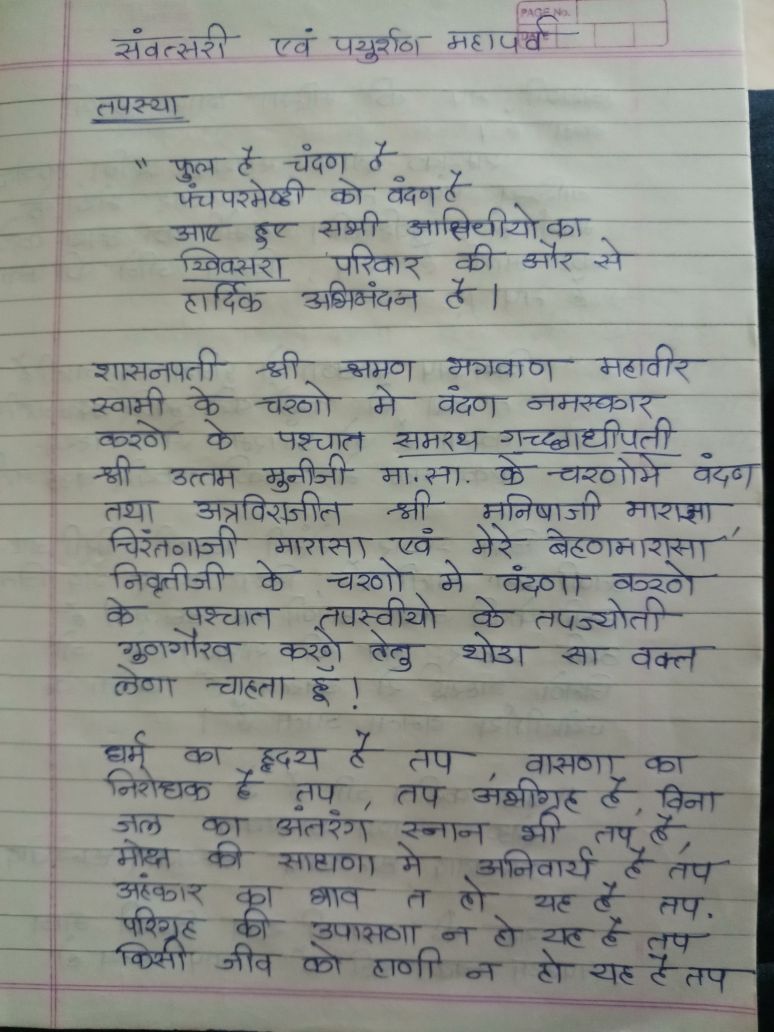 PAGE NO.
DATE
संवत्सरी एवं पयुर्शण महापर्व
तपस्या
" फुल है चंदण है
पंचपरमेष्ठी को वंदण है
आए हुए सभी आतिथीयो का
खिवसरा परिवार की और से
हार्दिक अभिनंदन है।
शासनपती श्री श्रमण भगवाण महावीर
स्वामी के चरणो मे वंदण नमस्कार
करणे के पश्चात समरथ गच्छाधीपती
श्री उत्तम मुनीजी मा.सा. के चरणोमे वंदण
तथा अत्रविराजीत श्री मनिषाजी मारासा,
चिरंतणाजी मारासा एवं मेरे बेहणमारासा
निवृतीजी के चरणो मे वंदणा करणे
के पश्चात तपस्वीयो के तपज्योती
गुणगौरव करणे हेतु थोडा सा वक्त
लेणा चाहता हु!
धर्म का हृदय है तप, वासणा का
निरोधक है तप, तप अभीग्रह है, विना
जल का अंतरंग स्नान भी तप है,
मोक्ष की साधणा मे अनिवार्य है तप
अहंकार का भाव त हो यह है तप.
परिग्रह की उपासणा न हो यह है तप
किसी जीव को हाणी न हो यह है तप